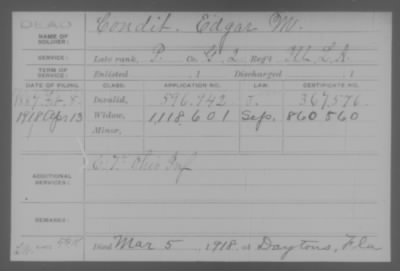 DEAD
NAME OF SOLDIER: Condit, Edgar M.
SERVICE: Late rank, P. Co. G 2 Reg't Ill. L. A.
TERM OF SERVICE: Enlisted , 1 Discharged , 1
DATE OF FILING. CLASS. APPLICATION NO. LAW. CERTIFICATE NO.
1887 Feb. 8. Invalid, 596.942 J. 367,576.
1918 Apr 13 Widow, 1,118,601 Sep. 860 560
Minor,
ADDITIONAL SERVICES: Ohio Inf
REMARKS:
Died Mar 5, 1918, at Daytona, Fla